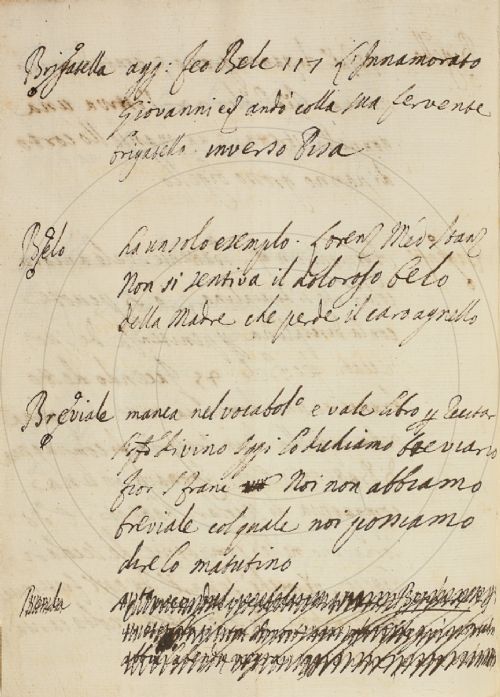 Brigatella agg: Feo Bele 117 L'Innamorato
Giovanni ed andò colla sua fervente
brigatella inverso Pisa
Belo ha un solo esemplo. Loren Med Stanz
Non si sentiva il doloroso belo
della Madre che perde il caro agnello
Breviale manca nel vocabol° e vale libro p recitar
divino oggi lo diciamo breviario
fior S franc Noi non abbiamo
breviale col quale noi possiamo
dire lo matutino